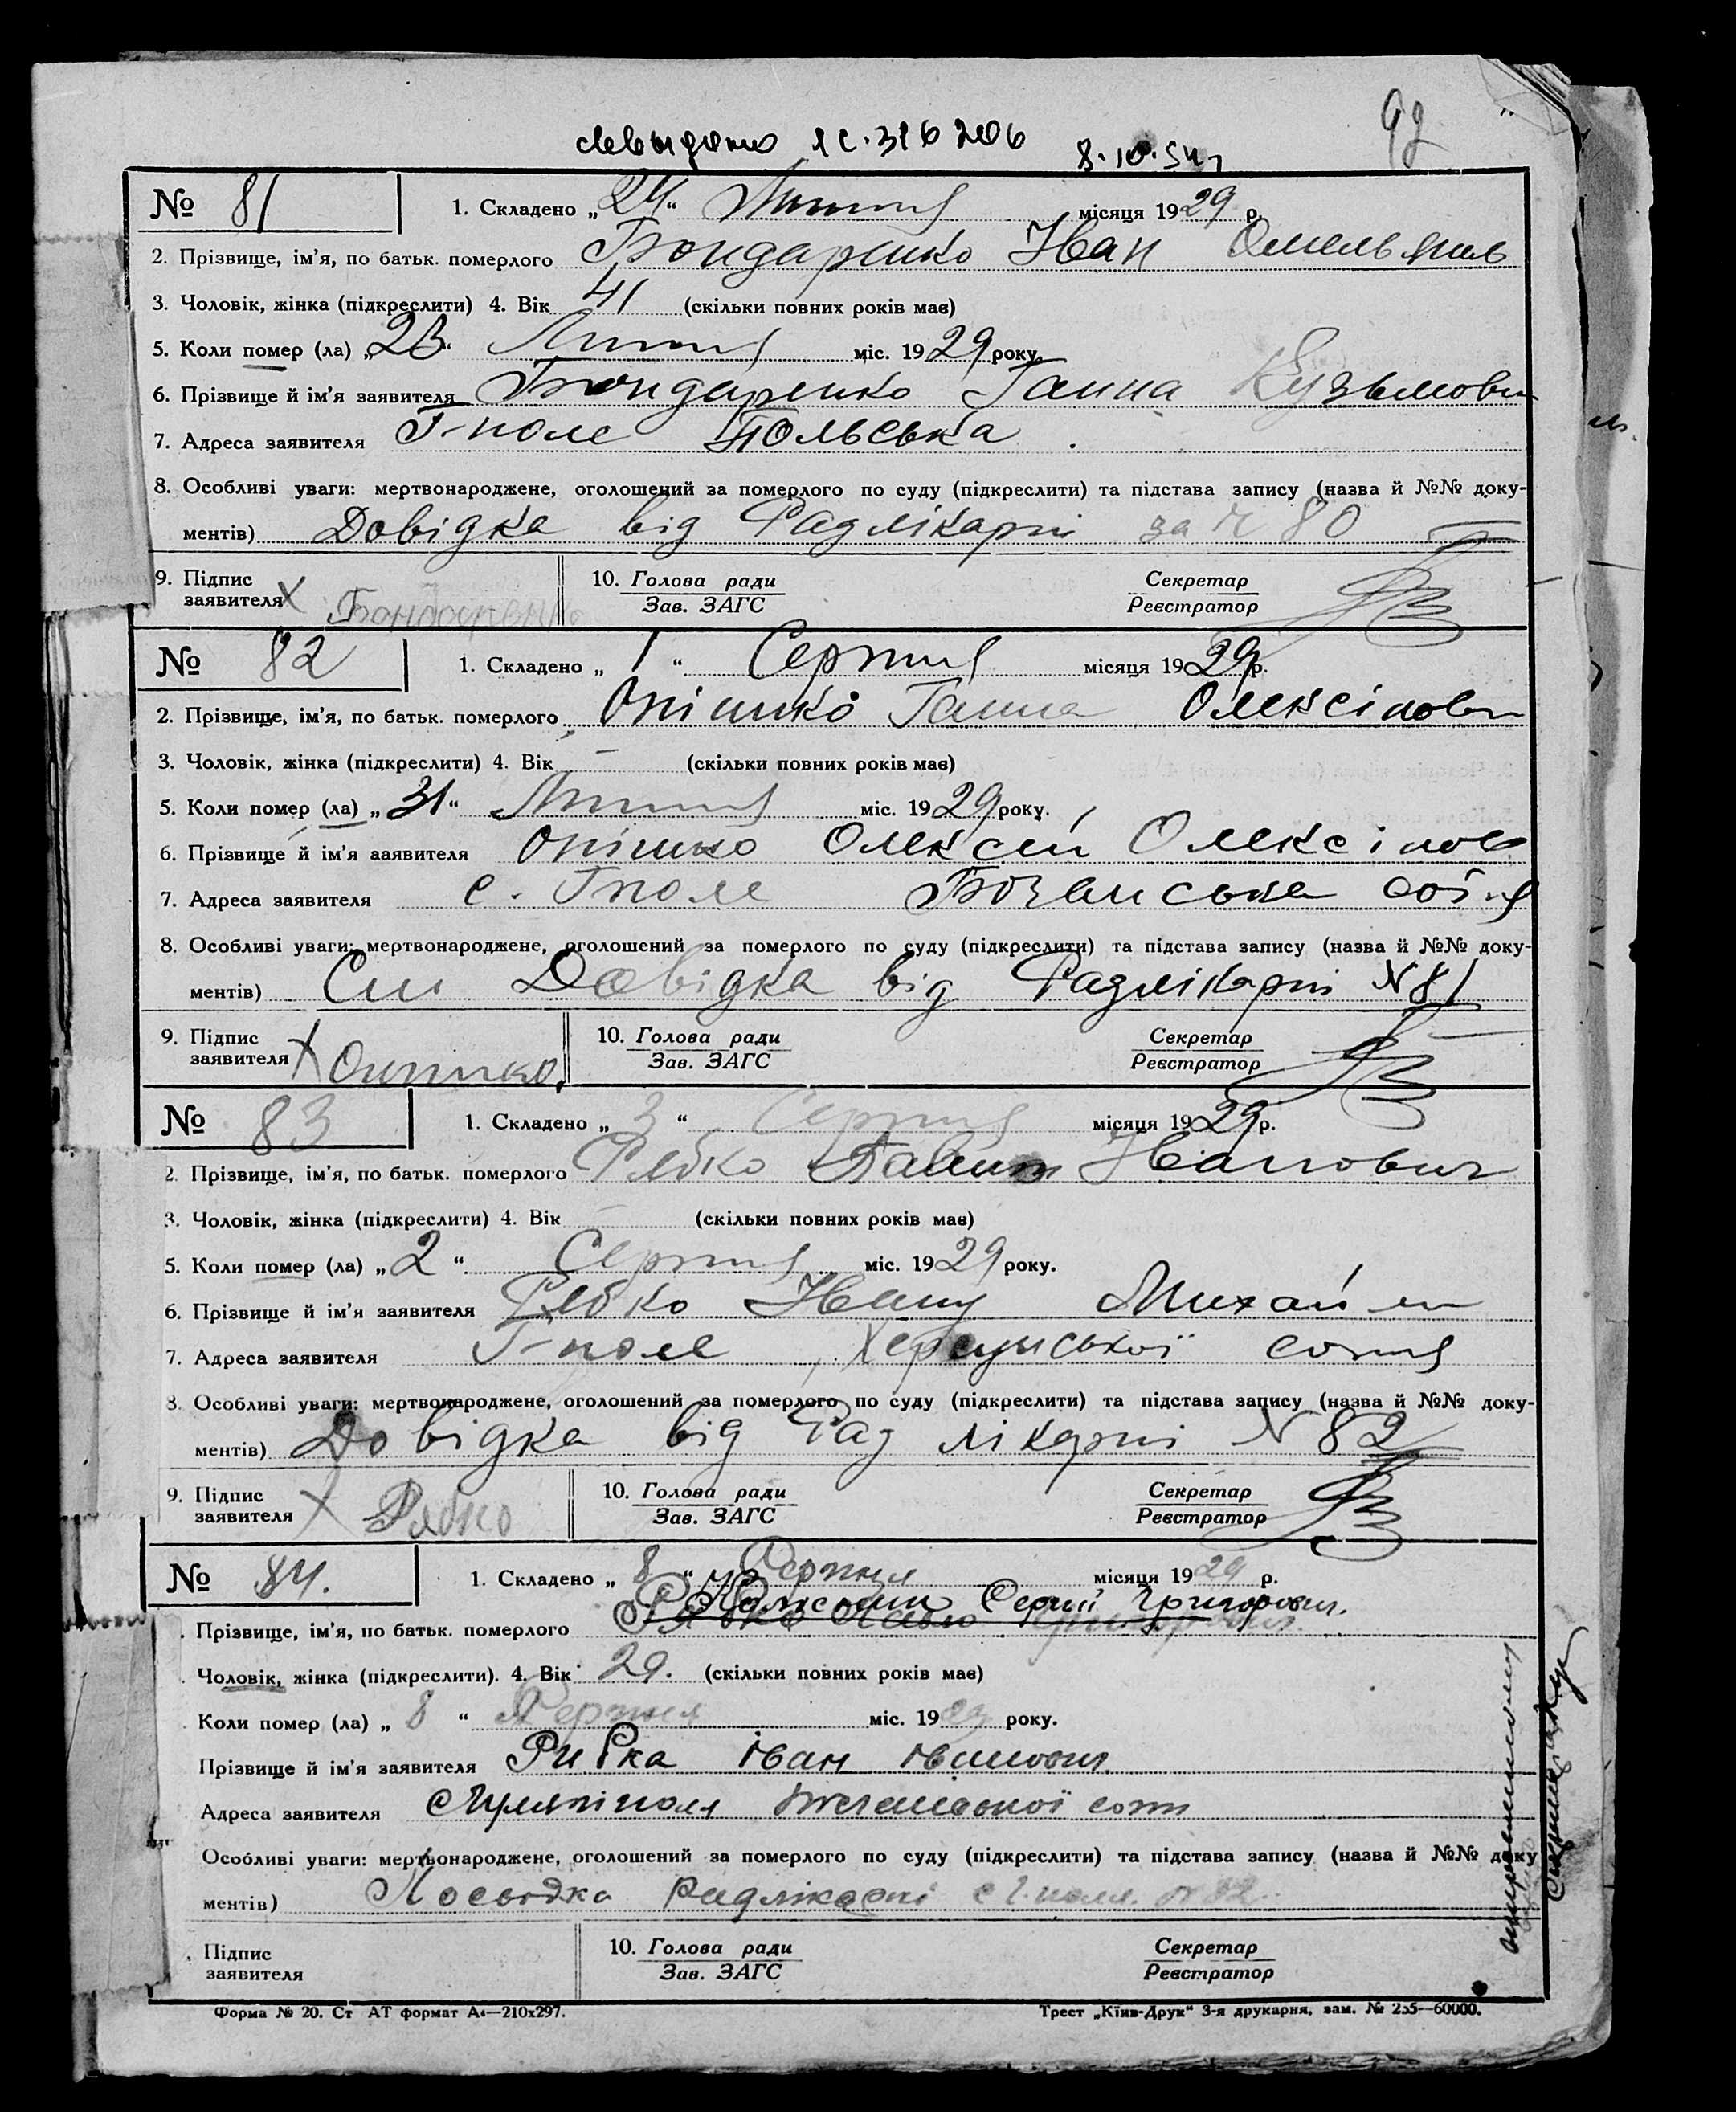 1 С. 316 206
8.10.54
№ 81 1. Складено „24“ Липня місяця 1929 р.
2. Прізвище, ім'я, по батьк. померлого Бондаренко Иван
3. Чоловік, жінка (підкреслити) 4. Вік 41 (скільки повних років має)
5. Коли помер (ла) „23“ Липня міс. 1929 року.
6. Прізвище й ім'я заявителя Бондаренко Ганна Кузьмовн
7. Адреса заявителя Г-поле Польська
8. Особливі уваги: мертвонароджене, оголошений за померлого по суду (підкреслити) та підстава запису (назва й №№ доку-
ментів) Довідка від Радлікарні за № 80
9. Підпис 10. Голова ради Секретар
заявителя х Бондаренко Зав. ЗАГС Реєстратор
№ 82 1. Складено „1“ Серпня місяця 1929 р.
2. Прізвище, ім'я, по батьк. померлого Онішко Ганна Олексіновн
3. Чоловік, жінка (підкреслити) 4. Вік – (скільки повних років має)
5. Коли помер (ла) „31“ Липня міс. 1929 року.
6. Прізвище й ім'я заявителя Онішко Олексій
7. Адреса заявителя с. Гполе сотня
8. Особливі уваги: мертвонароджене, оголошений за померлого по суду (підкреслити) та підстава запису (назва й №№ доку-
ментів) Довідка від Радлікарні N 81
9. Підпис 10. Голова ради Секретар
заявителя х Зав. ЗАГС Реєстратор
№ 83 1. Складено „3“ Серпня місяця 1929 р.
2. Прізвище, ім'я, по батьк. померлого Рябко Иванович
3. Чоловік, жінка (підкреслити) 4. Вік – (скільки повних років має)
5. Коли помер (ла) „2“ Серпня міс. 1929 року.
6. Прізвище й ім'я заявителя Рябко
7. Адреса заявителя Г-поле, Херсунської сотня
8. Особливі уваги: мертвонароджене, оголошений за померлого по суду (підкреслити) та підстава запису (назва й №№ доку-
ментів) Довідка від Рад лікарні N 82
9. Підпис 10. Голова ради Секретар
заявителя х Рябко Зав. ЗАГС Реєстратор
№ 84. 1. Складено „8“ Серпня місяця 1929 р.
Сергій Григорович.
Прізвище, ім'я, по батьк. померлого
Чоловік, жінка (підкреслити). 4. Вік 29. (скільки повних років має)
Коли помер (ла) „8“ Серпня міс. 1929 року.
Прізвище й ім'я заявителя Рибка Іван Іванович.
Адреса заявителя сотн
Особливі уваги: мертвонароджене, оголошений за померлого по суду (підкреслити) та підстава запису (назва й №№ доку
ментів) Радлікарні
Підпис 10. Голова ради Секретар
заявителя Зав. ЗАГС Реєстратор
Форма № 20. Ст АТ формат А4—210х297. Трест „Київ-Друк“ 3-я друкарня, зам. № 255—60000.